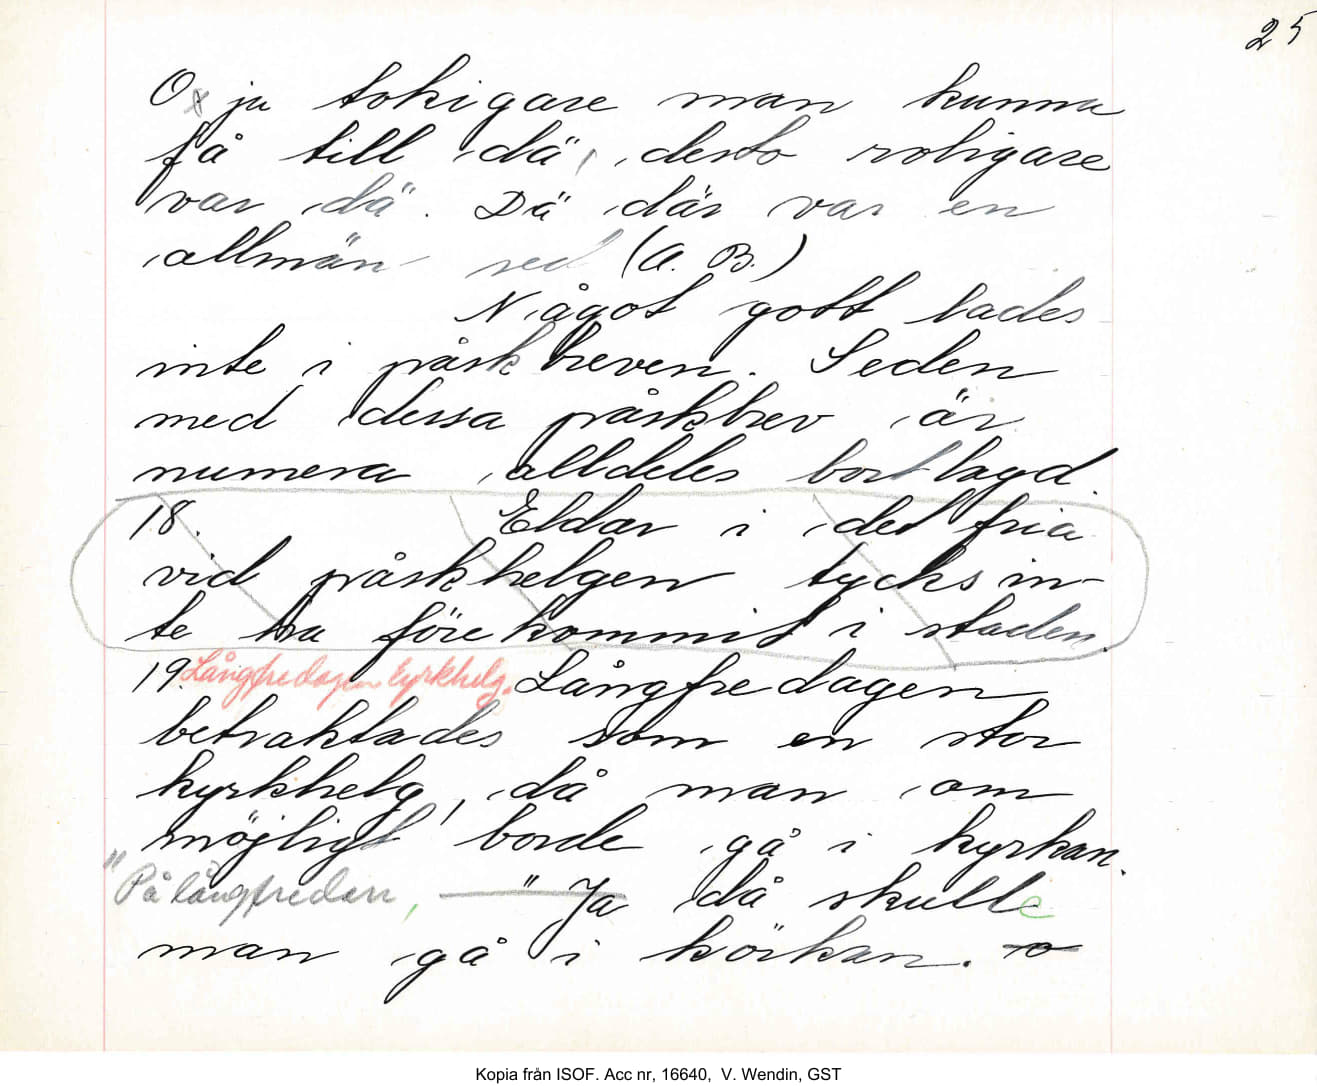 25
O ju tokigare man kunna
få till dä, desto roligare
var dä. Dä där var en
allmän sed (A. B.)
Något gott lades
inte i påskbreven. Seden
med dessa påskbrev är
numera alldeles bortlagd.
18. Eldar i det fria
vid påskhelgen tycks in-
te ha förekommit i staden.
19. Långfredagen kyrkhelg. Långfredagen
betraktades som en stor
kyrkhelg, då man om
möjligt borde gå i kyrkan.
"På långfredan, " Ja då skulle
man gå i körkan. o
Kopia från ISOF. Acc nr, 16640, V. Wendin, GST